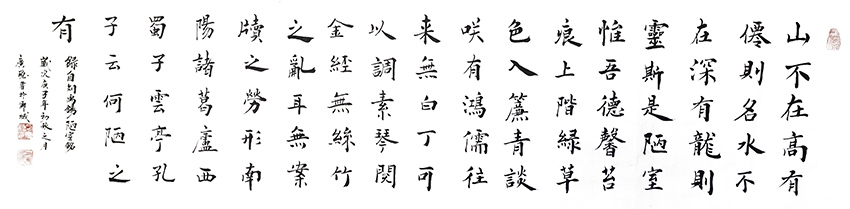 山不在高有
僊則名水不
在深有龍則
靈斯是陋室
惟吾德馨苔
痕上階緑草
色入簾青談
咲有鴻儒往
来無白丁可
以調素琴閱
金經無絲竹
之亂耳無案
牘之勞形南
陽諸葛廬西
蜀子雲亭孔
子云何陋之
有
錄自劉禹錫陋室銘
歲次庚子年初秋之月
書於城